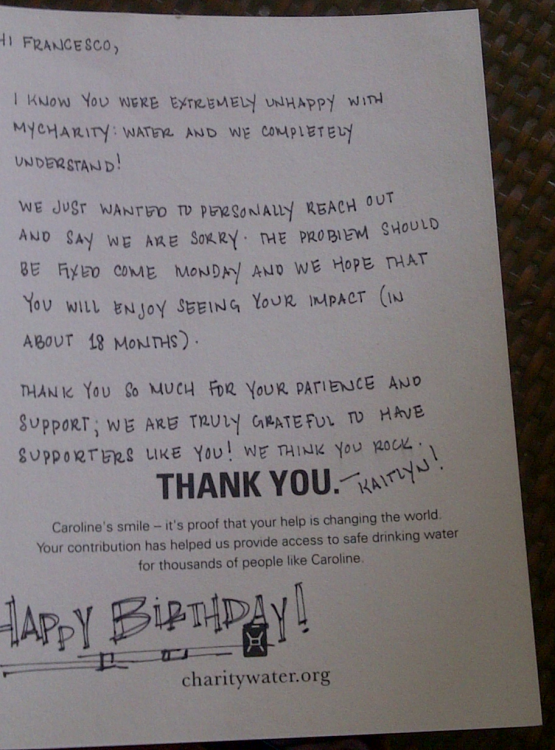 HI FRANCESCO,
I KNOW YOU WERE EXTREMELY UNHAPPY WITH
MYCHARITY: WATER AND WE COMPLETELY
UNDERSTAND!
WE JUST WANTED TO PERSONALLY REACH OUT
AND SAY WE ARE SORRY. THE PROBLEM SHOULD
BE FIXED COME MONDAY AND WE HOPE THAT
YOU WILL ENJOY SEEING YOUR IMPACT (IN
ABOUT 18 MONTHS).
THANK YOU SO MUCH FOR YOUR PATIENCE AND
SUPPORT; WE ARE TRULY GRATEFUL TO HAVE
SUPPORTERS LIKE YOU! WE THINK YOU ROCK.
THANK YOU. —KAITLYN!
Caroline's smile – it's proof that your help is changing the world.
Your contribution has helped us provide access to safe drinking water
for thousands of people like Caroline.
HAPPY BIRTHDAY!
charitywater.org